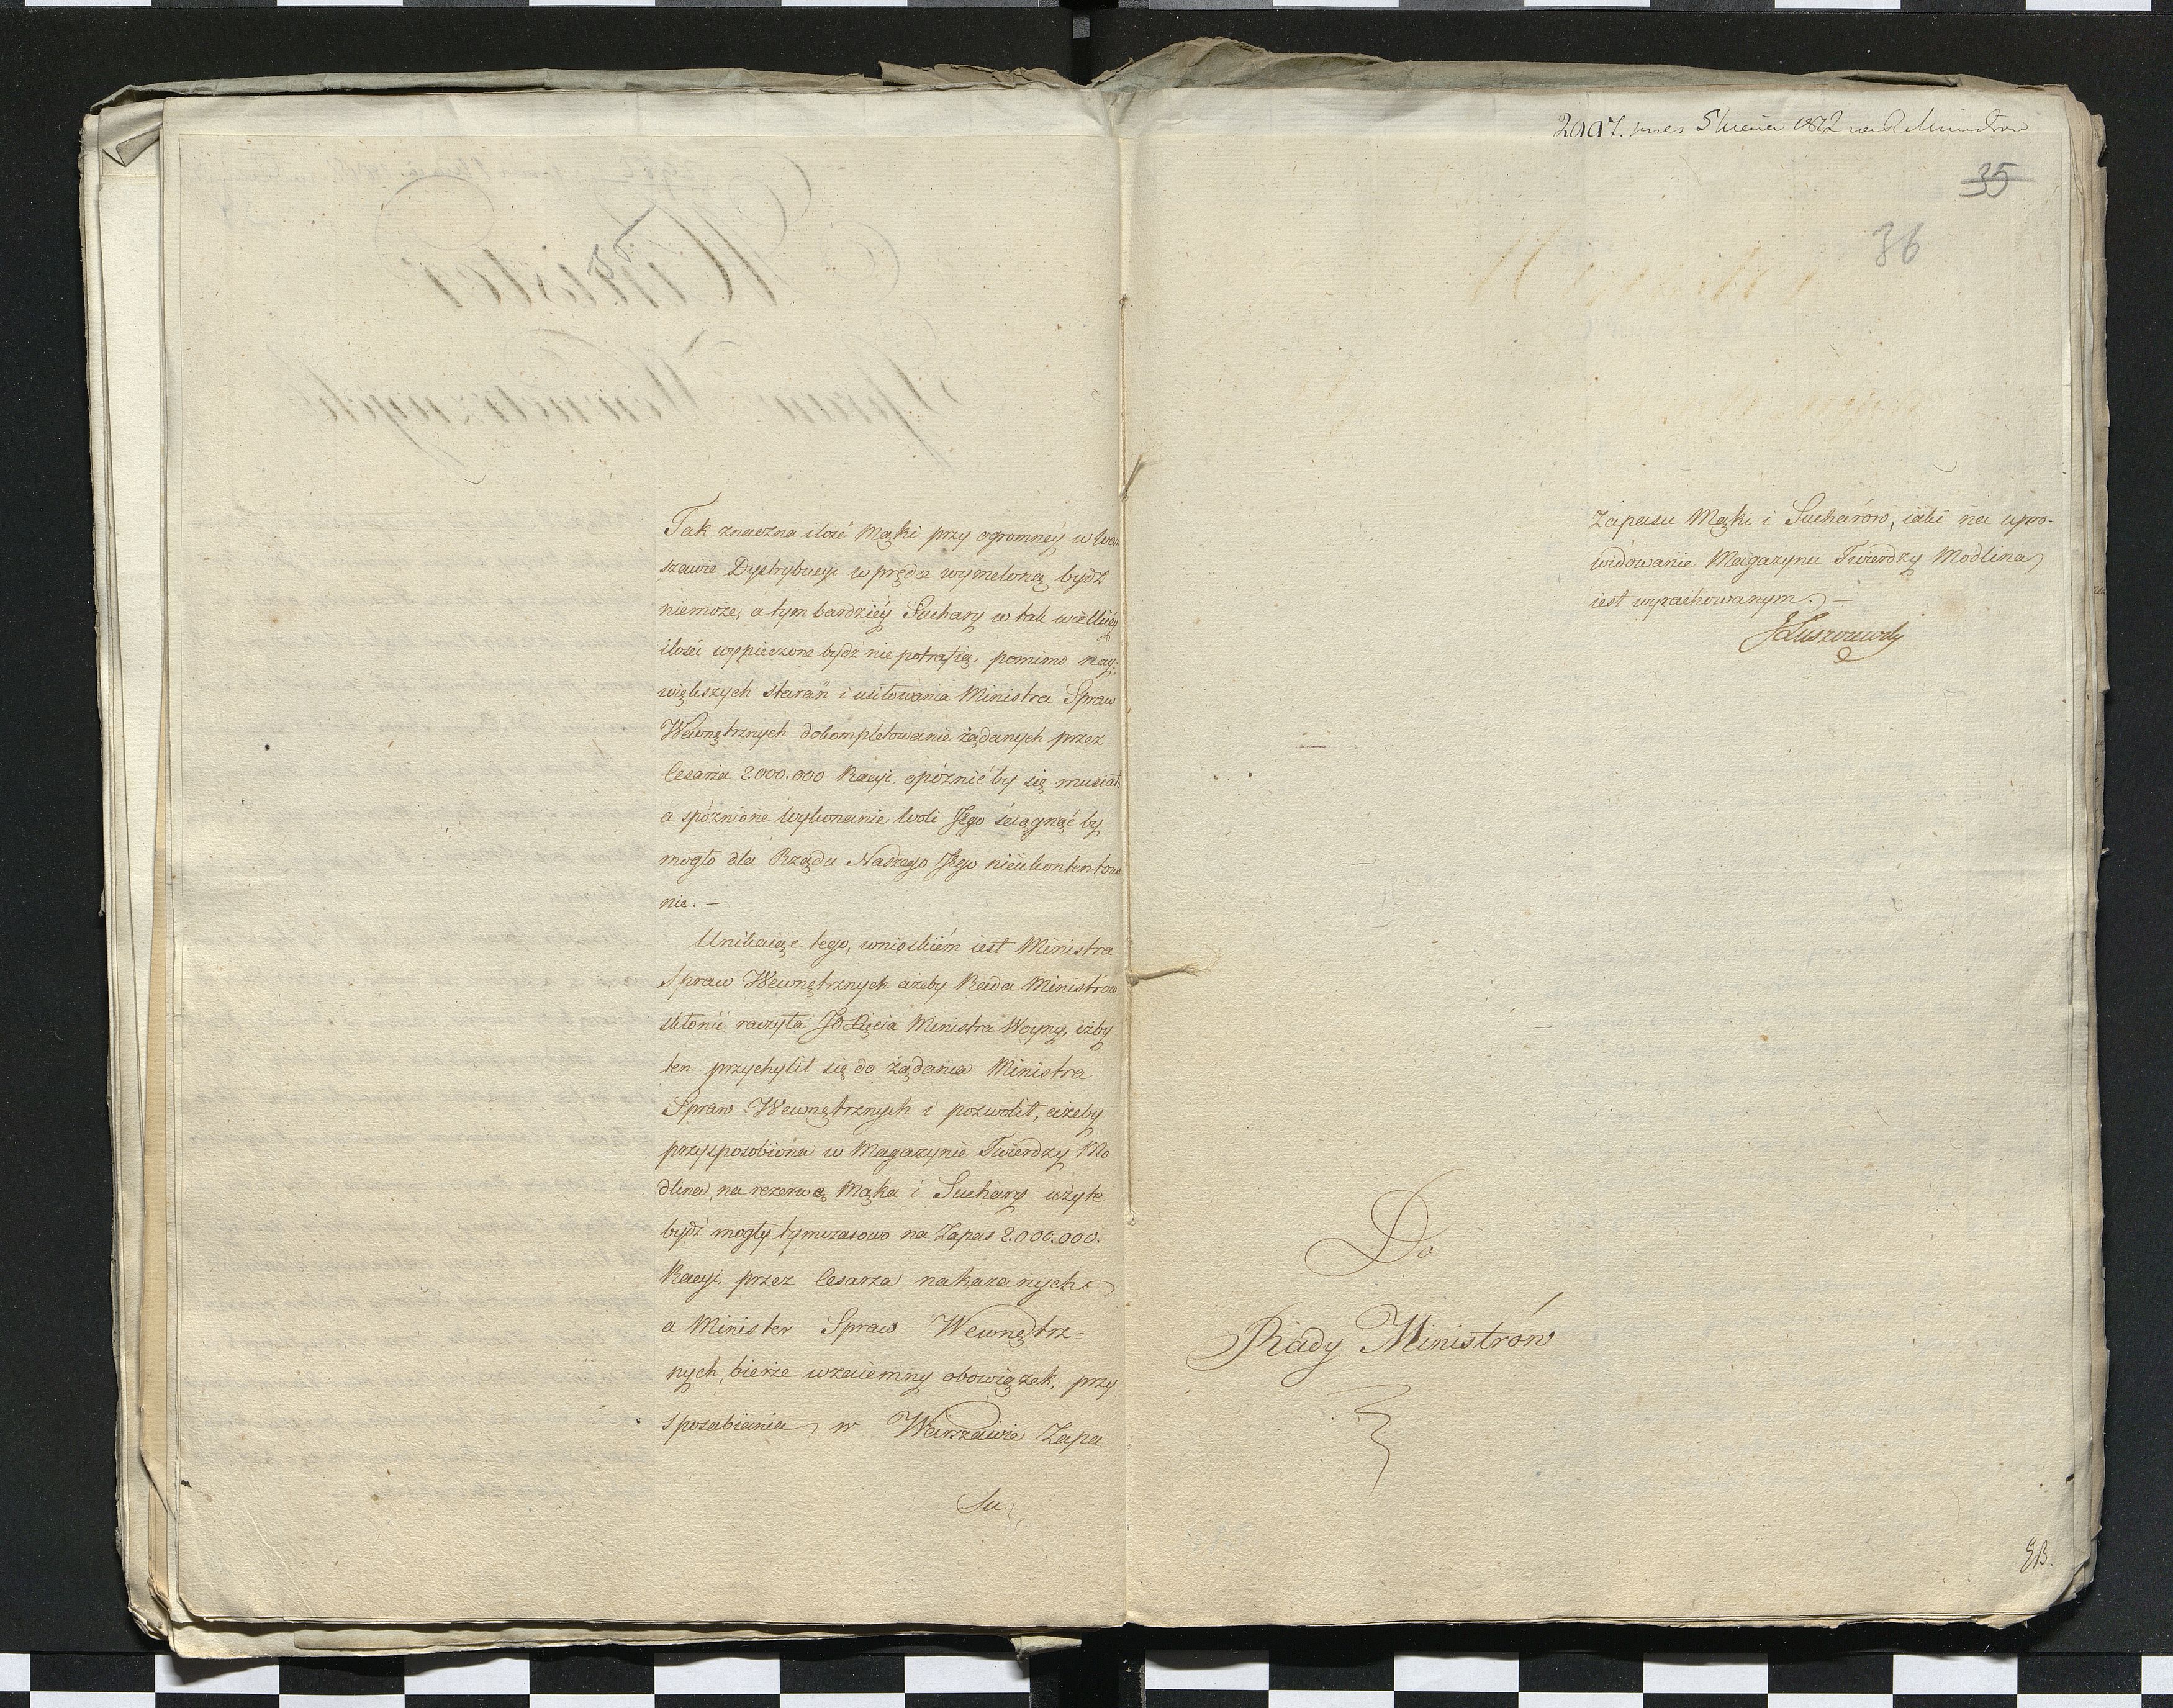 Tak znaczna ilość Mąki przy ogromney w War
szawie Dystrybucyi w prędce wymeloną bydź
niemoże, a tym bardziéy Suchary w tak wielkiéy
ilości wypieczone bydź nie potrafią, pomimo nay-
większych starań i usiłowania Ministra Spraw
Wewnętrznych dokompletowanie żądanych przez
Cesarza 2.000.000 Racyi opóźnić by się musiało
a spóźnione wykonanie Woli Jego ściągnąć by
mogło dla Rządu Naszego Jego nieukontentowa
nie. —
Unikaiąc tego, wnioskiem iest Ministra
Spraw Wewnętrznych ażeby Rada Ministrów
skłonić raczyła JO Xięcia Ministra Woyny, iżby
ten przychylił się do żądania Ministra
Spraw Wewnętrznych i pozwolił, ażeby
przysposobiona w Magazynie Twierdzy Mo
dlina, na rezerwę Mąka i Suchary użyte
bydź mogły tymczasowo na Zapas 2.000.000.
Racyi przez Cesarza nakazanych
a Minister Spraw Wewnętrz=
nych, bierze wzaiemny obowiązek, przy
sposabiania w Warszawie Zapa
su
2997. 5 1812 Ministrów
35
36
Zapasu Mąki i Sucharów, iaki na upro-
widowanie Magazynu Twierdzy Modlina
iest wyrachowanym. —
JŁuszczewski
Do
Rady Ministrów
EB.